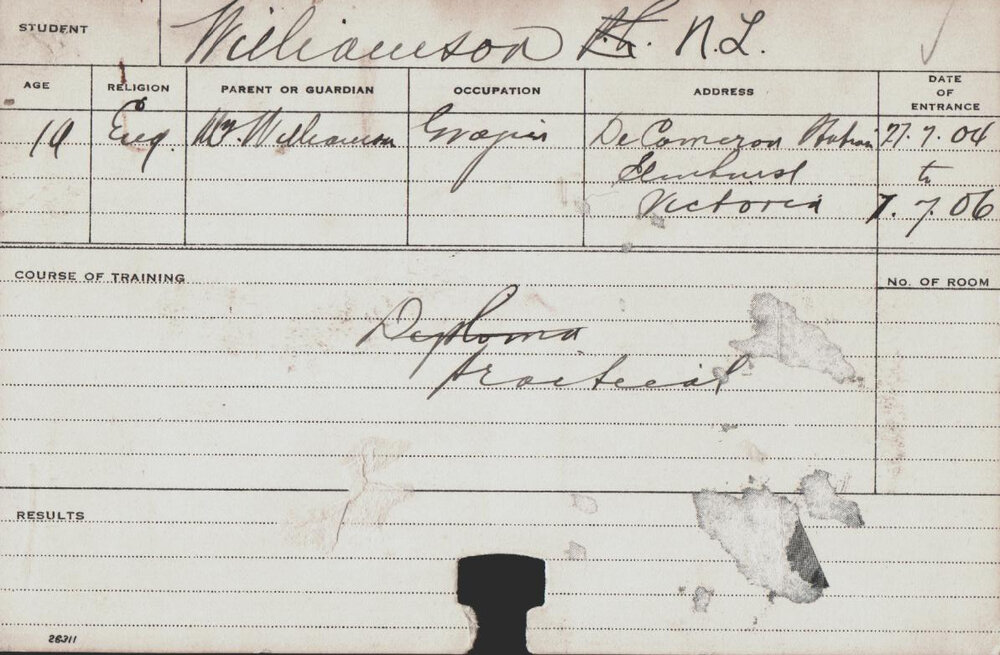 STUDENT Williamson N.L.
AGE RELIGION PARENT OR GUARDIAN OCCUPATION ADDRESS DATE OF ENTRANCE
19 Eng. Williamson Grazier De Cameron Station 27.7.04
Elmhurst to
Victoria 7.7.06
COURSE OF TRAINING No. OF ROOM
Diploma
Practical
RESULTS
26311